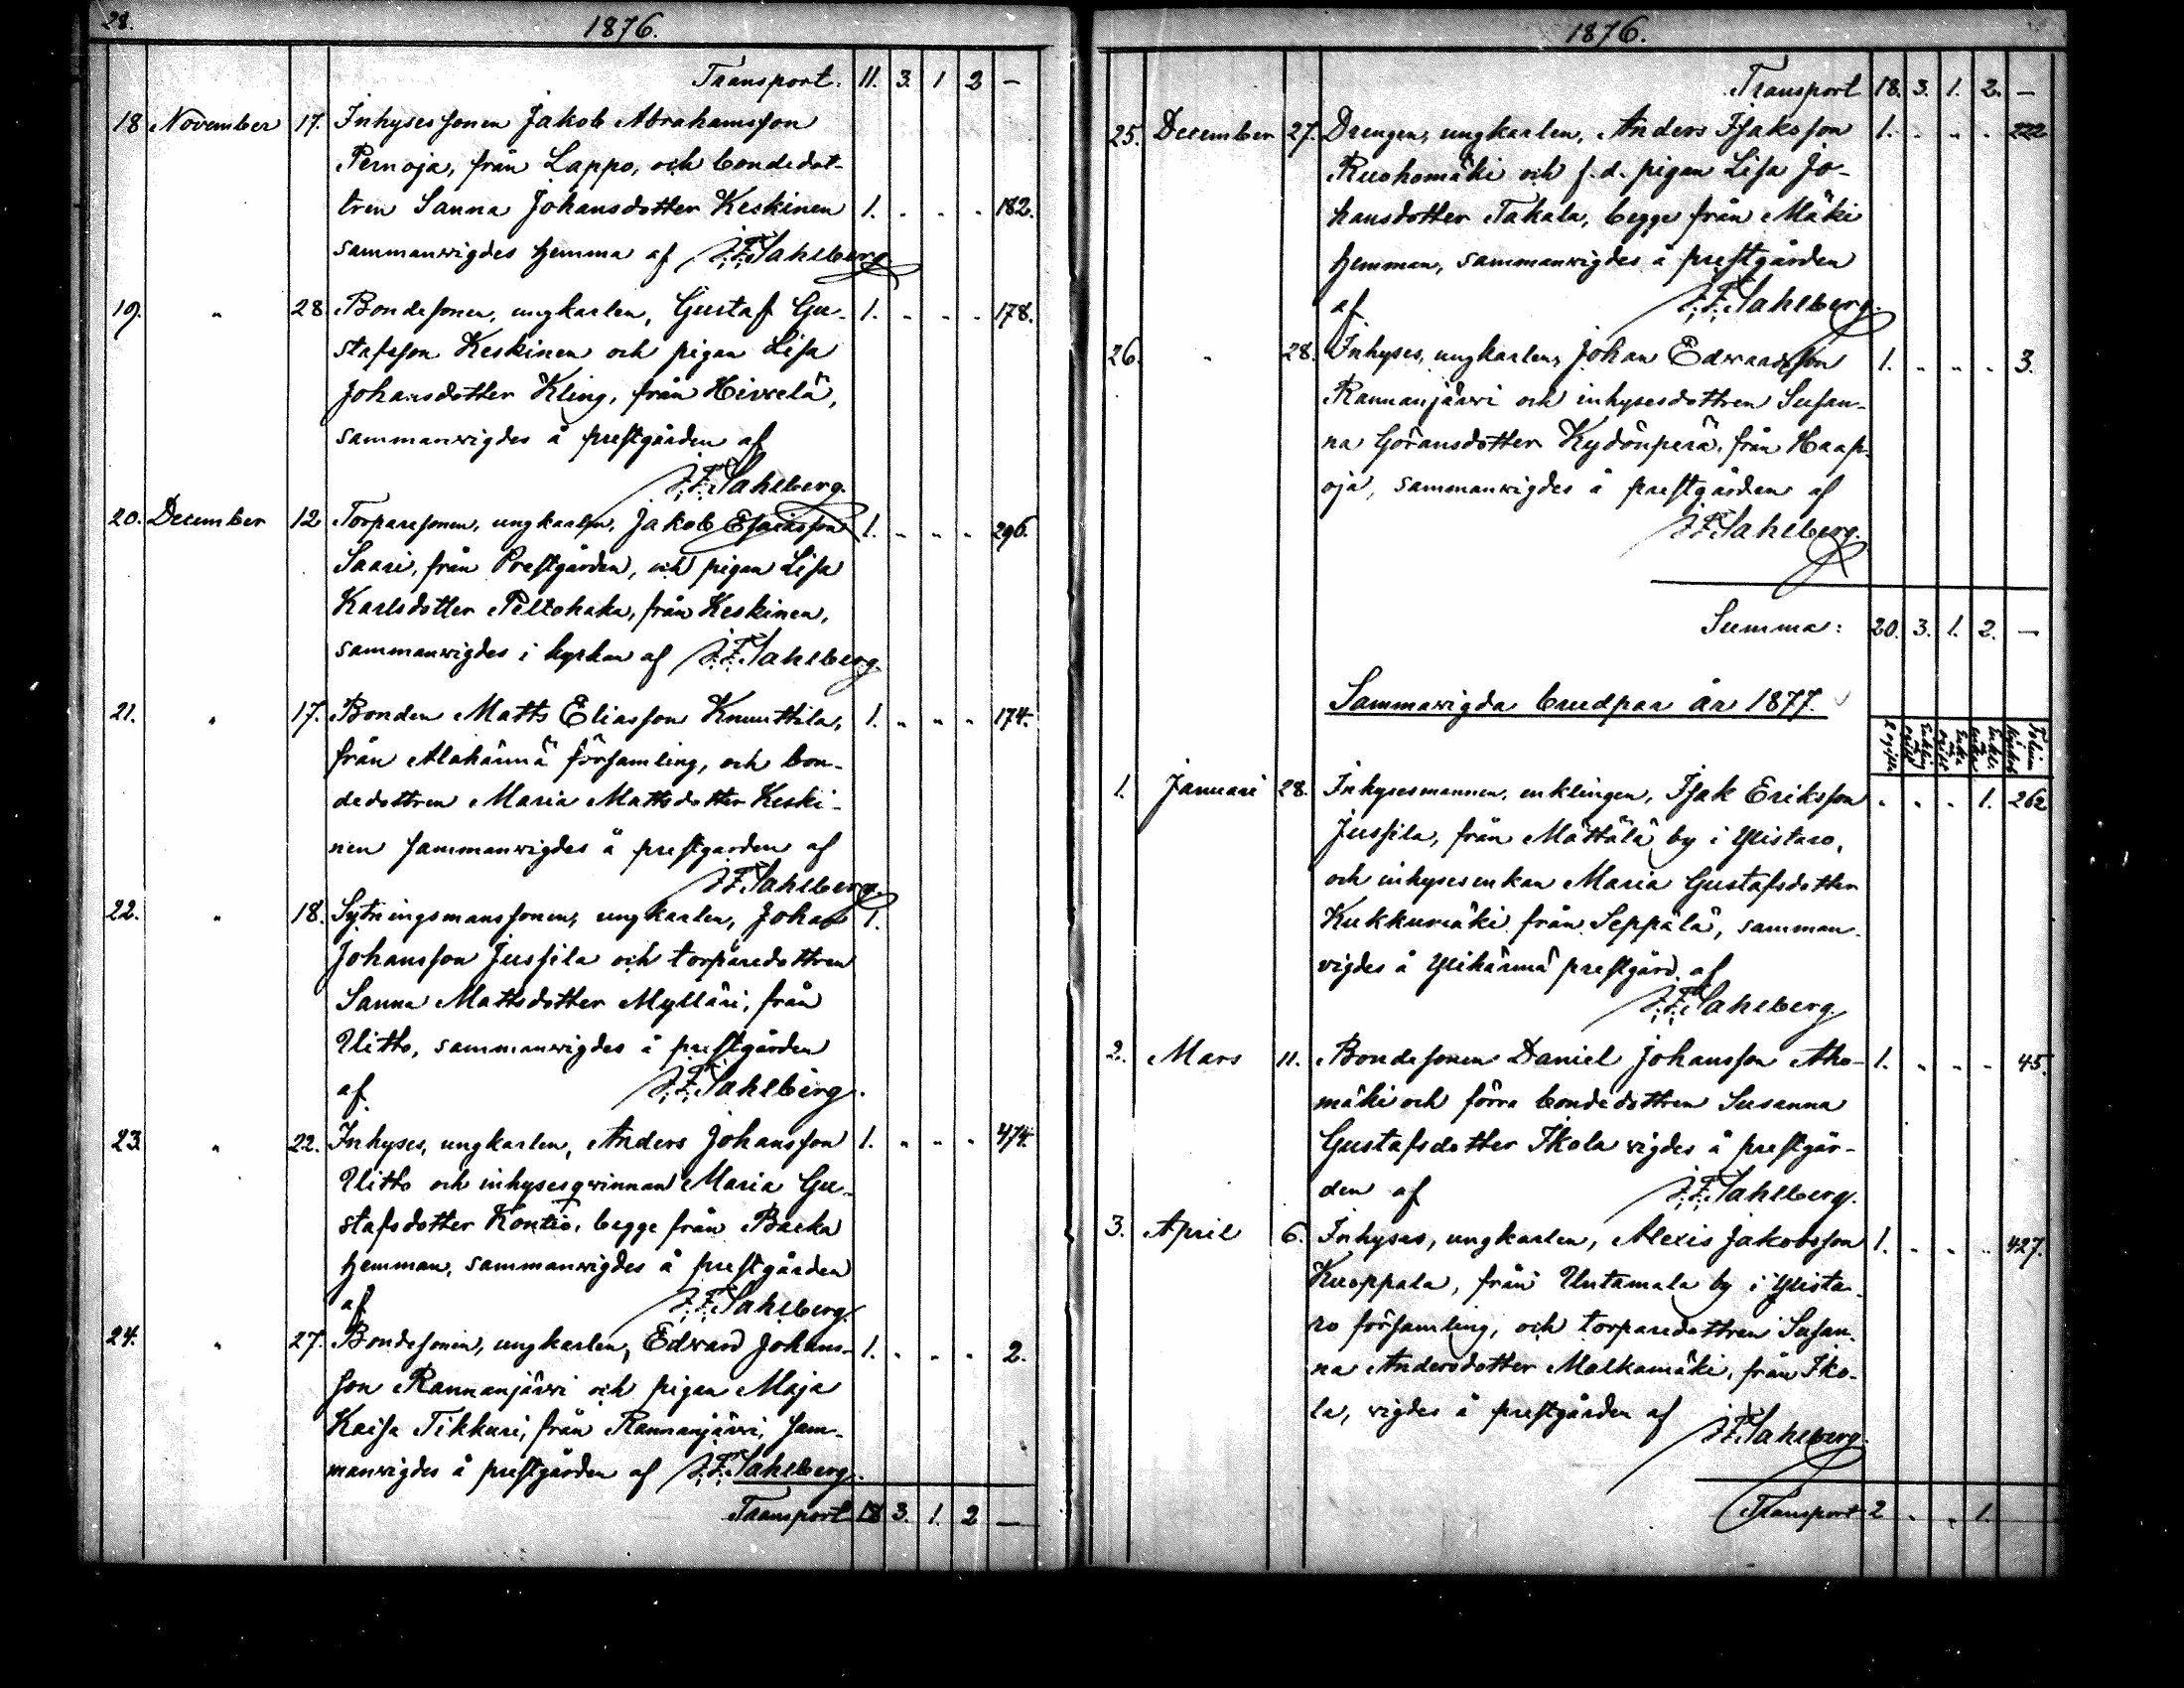 28.
1876.
Transport. 11. 3. 1 2 —
18 November 17. Inhysessonen Jakob Abrahamsson
Pernoja, från Lappo, och bondedot-
tren Sanna Johansdotter Keskinen 1. . . . 182.
sammanvigdes hemma af J. F. Sahlberg
19. " 28 Bondesonen, ungkarlen, Gustaf Gu- 1. . . . 178.
stafsson Keskinen och pigan Lisa
Johansdotter Kling, från Hirvelä,
sammanvigdes å prestgården af
J. F. Sahlberg.
20. December 12 Torparesonen, ungkarlen, Jakob Esaiasson 1. " " " 296.
Saari, från Prestgården, och pigan Lisa
Karlsdotter Peltohaka, från Keskinen,
sammanvigdes i kyrkan af J. F. Sahlberg.
21. " 17. Bonden Matts Eliasson Knuuttila, 1. " " " 174.
från Alahärmä församling, och bon-
dedottren Maria Mattsdotter Keski-
nen sammanvigdes å prestgården af
J. F. Sahlberg.
22. " 18. Sytningsmanssonen, ungkarlen, Johan 1.
Johansson Jussila och torparedottren
Sanna Mattsdotter Mylläri, från
Uitto, sammanvigdes å prestgården
af J. F. Sahlberg.
23. " 22. Inhyses, ungkarlen, Anders Johansson 1. " " " 474.
Uitto och inhysesqvinnan Maria Gu-
stafsdotter Kontio, begge från Backa
hemman, sammanvigdes å prestgården
af J. F. Sahlberg.
24. " 27. Bondesonen, ungkarlen, Edvard Johans- 1. " " " 2.
son Rannanjärvi och pigan Maja
Kaisa Tikkari, från Rannanjärvi, sam-
manvigdes å prestgården af J. F. Sahlberg.
Transport 18 3. 1. 2 —
1876.
Transport 18. 3. 1. 2. —
25. December 27. Drengen, ungkarlen, Anders Isaksson 1. " " " 222
Ruohomäki och f. d. pigan Lisa Jo-
hansdotter Takala, begge från Mäki
hemman, sammanvigdes å prestgården
af J. F. Sahlberg.
26. " 28. Inhyses, ungkarlen, Johan Edwardsson 1. " " " 3.
Rannanjärvi och inhysesdottren Susan-
na Göransdotter Kydönperä, från Haap-
oja, sammanvigdes å prestgården af
J. F. Sahlberg.
Summa: 20. 3. 1. 2. —
Sammavigda brudpar år 1877.
1. Januari 28. Inhysesmannen, enklingen, Isak Eriksson " " " 1. 262
Jussila, från Mättälä by i Ylistaro,
och inhysesenkan Maria Gustafsdotter
Kukkumäki från Seppälä, samman-
vigdes å Ylihärmä prestgård af
J. F. Sahlberg.
2. Mars 11. Bondesonen Daniel Johansson Aho- 1. " " " 45.
mäki och förra bondedottren Susanna
Gustafsdotter Ikola vigdes å prestgår-
den af J. F. Sahlberg.
3. April 6. Inhyses, ungkarlen, Alexis Jakobsson 1. " " " 427.
Kuoppala, från Untamala by i Ylista-
ro församling, och torparedottren Susan-
na Andersdotter Malkamäki, från Iko-
la, vigdes å prestgården af
J. F. Sahlberg.
Transport 2 " " 1.